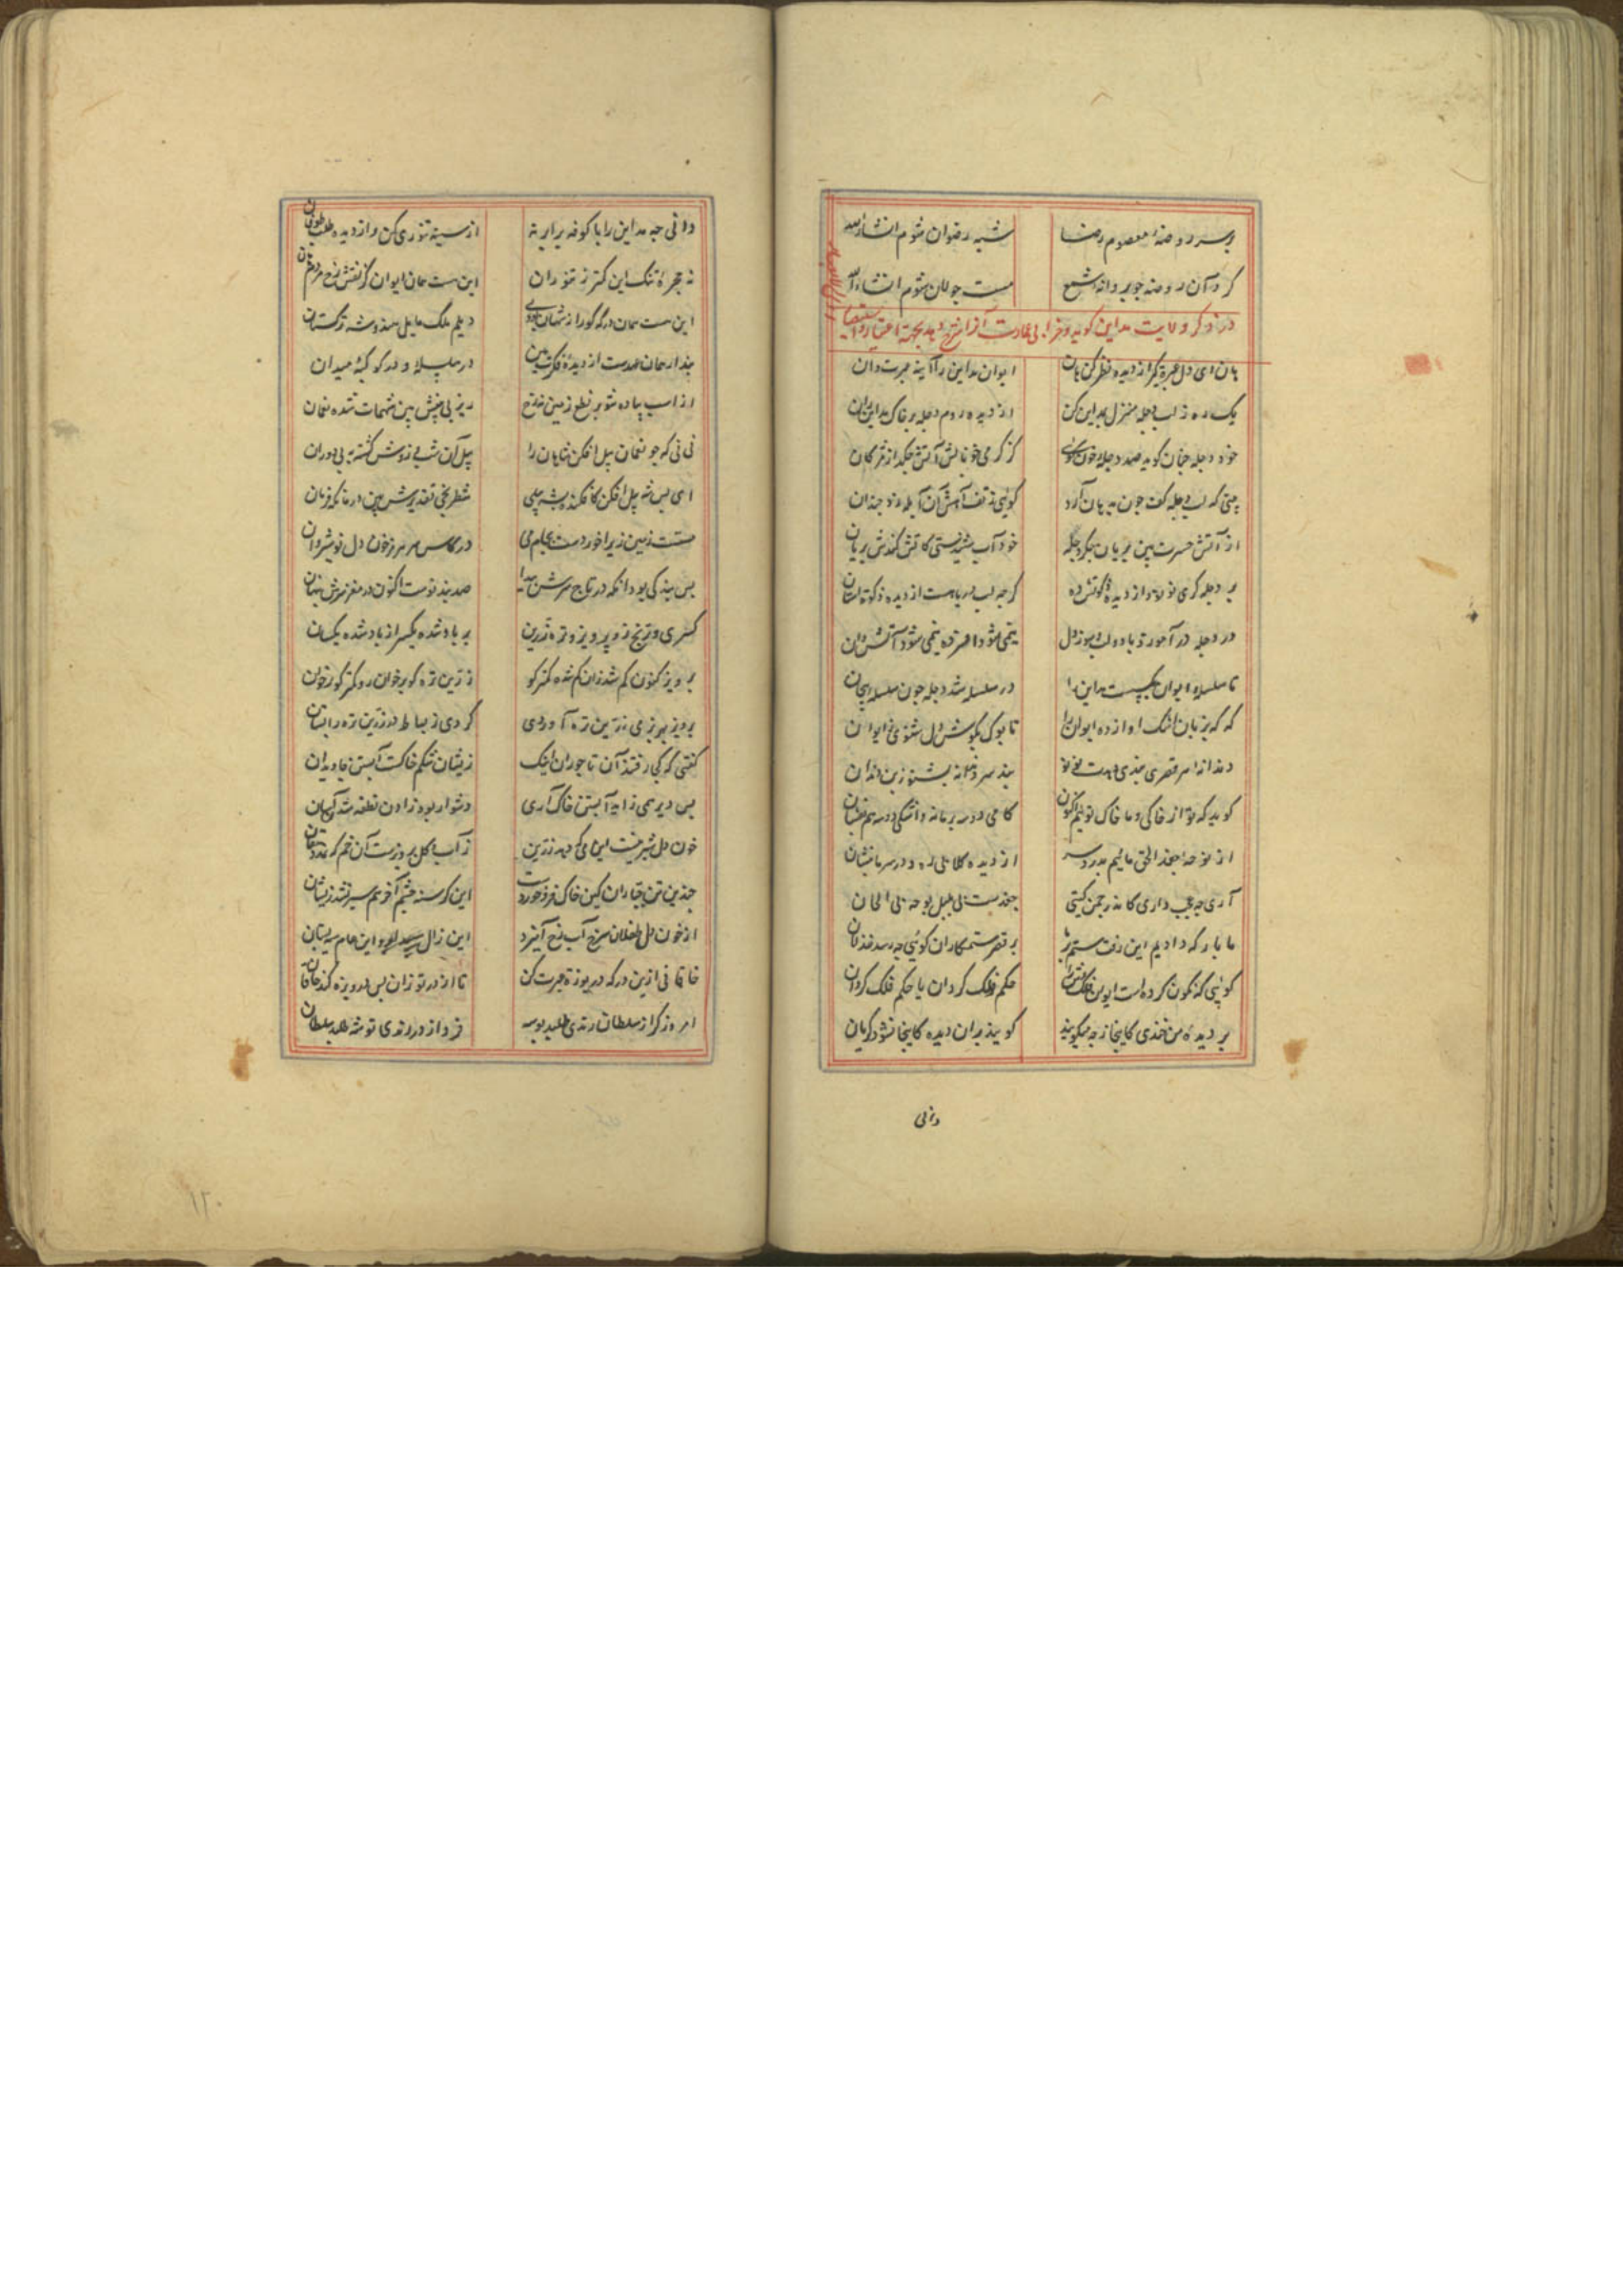 بر سر روضهٔ معصوم رضا شبه رضوان شوم انشاءالله
کرد آن روضه جو پروانهٔ شمع مست جولان شوم انشاءالله
در ذکر ولایت مداین کوید و خرابی عمارت آنرا شرح دهد بجهة اعتبار
هان ای دل عبرة بکر از دیده نظر کن هان ایوان مداین را آینه عبرت دان
یک ره ز لب دجله منزل بمداین کن از دیده دوم دجله بر خاک مداین ران
خود دجله جنان کرید صد دجلهٔ خون کویی کز کرمی خونابش آتش جکد از مژکان
بینی که لب دجله کف جون بدهان آرد کوئی ز تف آهش لب آبله زد جندان
از آتش حسرت بین بریان جکر دجله خود آب شنیدستی کاتش کندش بریان
بر دجله کری نو نو از دیده زکوتش ده کرجه لب دریاست از دیده زکوة استان
کر دجله در آموزد باد لب و سوز دل نیمی شود افسرده نیمی شود آتش دان
تا سلسله ایوان بکسست مداین را در سلسله شد دجله جون سلسله پیجان
که که بزبان اشک اواز ده ایوان را تا بوک بکوش دل شنوی ز ایوان
دندانهٔ هر قصری پندی دهدت نو نو پند سر دندانه بشنو ز بن دندان
کوید که تو از خاکی و ما خاک توئیم اکنون کامی دو سه بر ما نه و اشکی دو سه هم بفشان
از نوحهٔ جغد الحق مائیم بدرد سر از دیده کلابی کن درد سر ما بنشان
آری جه عجب داری کاندر جمن کیتی جغدست پی بلبل نوحه پی الحان
ما بارکه دادیم این رفت ستم بر ما بر قصر ستمکاران کوئی جه رسد خذلان
کوئی که نکون کرده است ایوان فلک وش را حکم فلک کردان یا حکم فلک کردان
بر دیدهٔ من خندی کاینجا ز جه میکرید کریند بران دیده کاینجا نشود کریان
دانی
دانی جه مداین را با کوفه برابر نه از سینه تنوری کن و از دیده طلب طوفان
نه حجرهٔ تنک این کمتر ز تنور آن
این هست همان ایوان کز نقش رخ مردم
این هست همان درکه کورا ز شهان بودی دیلم ملک بابل هندو شه ترکستان
پندار همان عهدست از دیدهٔ فکرت بین در سلسلهٔ درکه در کوکبهٔ میدان
از اسب پیاده شو بر نطع زمین نه رخ زیر پی پیلش بین شهمات شده نعمان
نی نی که جو نعمان بین پیل افکن شاهان را پیلان شب و روزش کشته بپی دوران
ای بس شه پیل افکن کافکنده بشه پیلی شطرنجی تقدیرش در ماتکه فرمان
مستست زمین زیرا خوردست بجای می در کاس سر هرمز خون دل نوشروان
بس پند که بود آنکه در تاج سرش پیدا صد پند نوست اکنون در مغز سرش پنهان
کسری و ترنج زر پرویز و ترهٔ زرین بر باد شده یکسر از یاد شده یکسان
پرویز کنون کم شد زان کم شده کمتر کو زرین تره کو بر خوان رو کم ترکوا بر خوان
پرویز بهر بزمی زرین تره آوردی کردی ز بساط زر زرین تره را بستان
کفتی که کجا رفتند آن تاجوران اینک زیشان شکم خاکست آبستن جاویدان
بس دیر همی زاید آبستن خاک آری دشوار بود زادن نطفه ستدن آسان
خون دل شیرینست این می که دهد رزبن ز آب و کل پرویزست آن خم که نهد دهقان
جندین تن جباران کین خاک فرو خورده است این کرسنه چشم آخر هم سیر نشد زیشان
از خون دل طفلان سرخ آب رخ آمیزد این زال سپید ابرو این مام سیه پستان
خاقانی ازین درکه دریوزهٔ عبرت کن تا از در تو زان پس دریوزه کند خاقان
امروز کر از سلطان رندی طلبد توشه فردا ز در رندی توشه طلبد سلطان